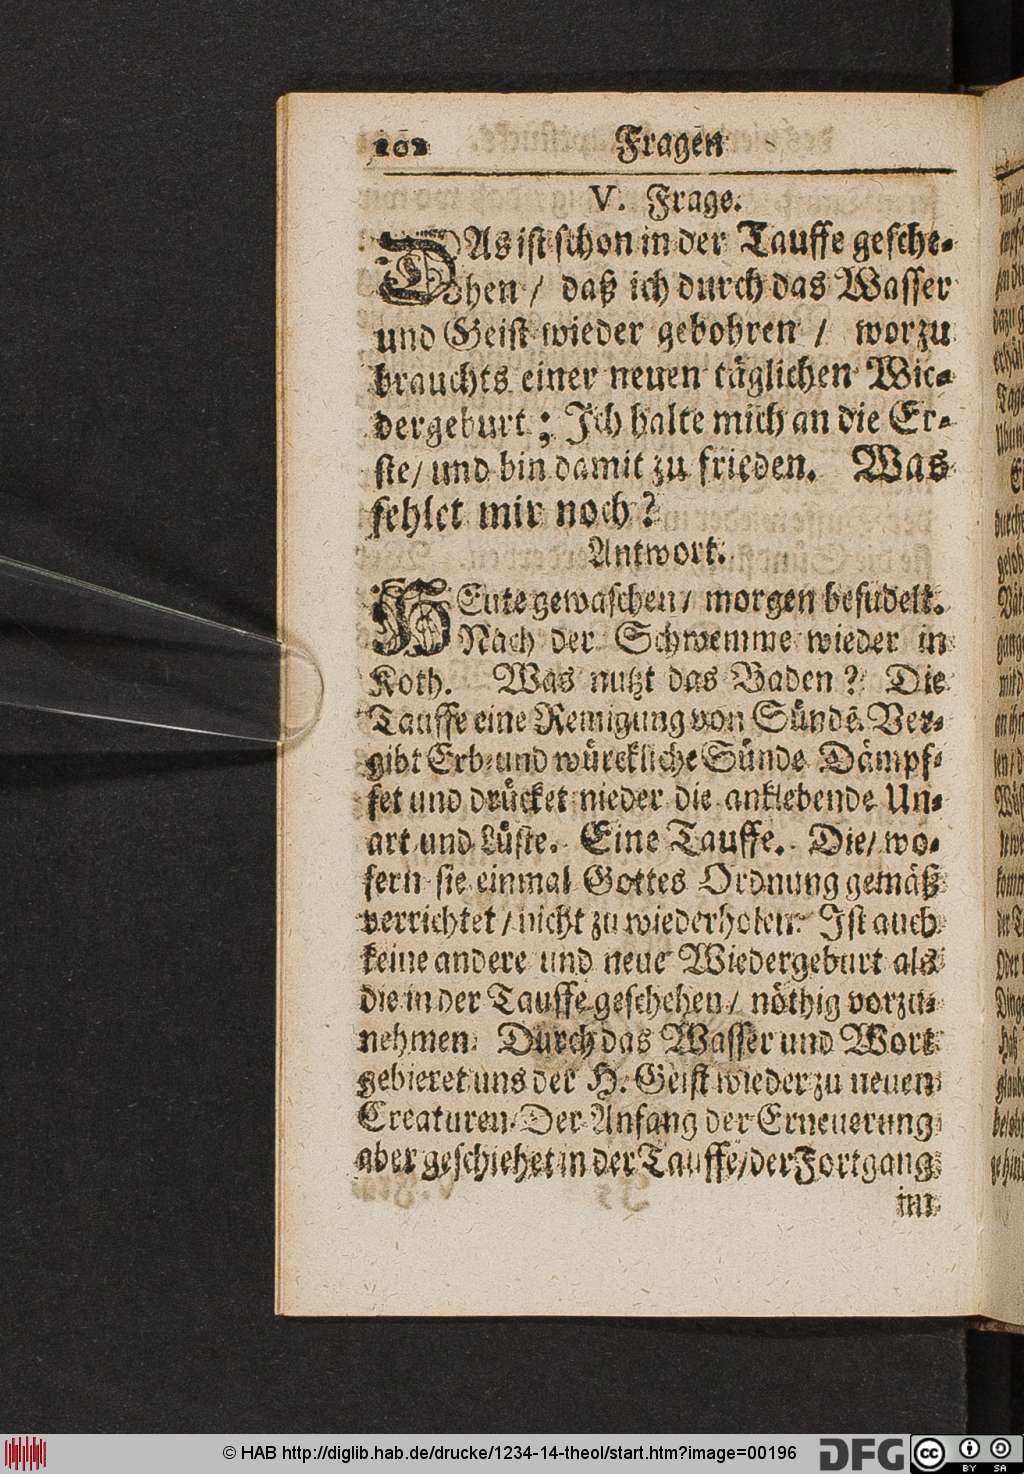 202 Fragen
V. Frage.
DAs ist schon in der Tauffe gesche-
hen / daß ich durch das Wasser
und Geist wieder gebohren / worzu
brauchts einer neuen täglichen Wie-
dergeburt ; Ich halte mich an die Er-
ste / und bin damit zu frieden. Was
fehlet mir noch ?
Antwort.
HEute gewaschen / morgen besudelt.
Nach der Schwemme wieder in
Koth. Was nutzt das Baden ? Die
Tauffe eine Reinigung von Sündē. Ver-
gibt Erb- und würckliche Sünde Dämpf-
fet und drücket nieder die anklebende Un-
art und Lüste. Eine Tauffe. Die / wo-
fern sie einmal Gottes Ordnung gemäß
verrichtet / nicht zu wiederholen. Ist auch
keine andere und neue Wiedergeburt als
die in der Tauffe geschehen / nöthig vorzu-
nehmen. Durch das Wasser und Wort
gebieret uns der H. Geist wieder zu neuen
Creaturen. Der Anfang der Erneuerung
aber geschiehet in der Tauffe / der Fortgang
im
© HAB http://diglib.hab.de/drucke/1234-14-theol/start.htm?image=00196 DFG cc BY SA